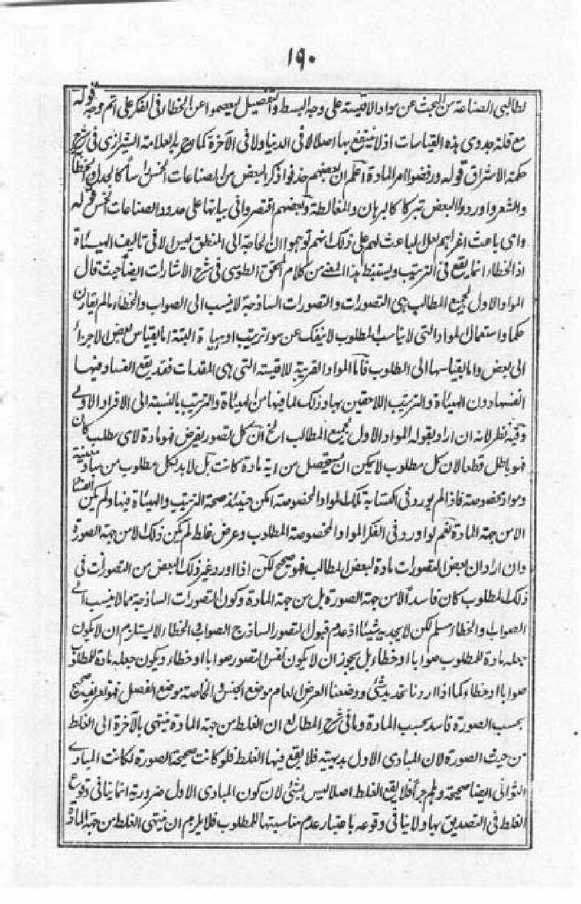 ١٩٠
لطالبی الصناعة من البحث عن مواد الاقیسة علی وجه البسط والتفصیل لیعصموا عن الخطار فی الفکر علی اتم وجه قوله
مع قلة جدوی هذه القیاسات اذ لا ینتفع بها اصلا لا فی الدنیا ولا فی الآخرة کما صرح به العلامة الشیرازی فی شرح
حکمة الاشراق قوله ورفضوا امر المادة اعلم ان بعضهم حذفوا ذکر البعض من الصناعات الخمس راسا کالجدل والخطابة
والشعر واوردوا البعض تبرکا کالبرهان والمغالطة وبعضهم اقتصروا فی بیانها علی حدود الصناعات الخمس قوله
وای باعث اغراهم لعل الباعث لهم علی ذلک انهم توهموا ان الحاجة الی المنطق لیس الا فی تالیف الهیئة
اذ الخطاء انما یقع فی الترتیب ویستنبط هذا المعنی من کلام المحقق الطوسی فی شرح الاشارات ایضا حیث قال
المواد الاول لجمیع المطالب هی التصورات والتصورات الساذجة لا ینسب الی الصواب والخطاء ما لم یقارن
حکما واستعمال المواد التی لا یناسب المطلوب لا ینفک عن سوء ترتیب او هیاة البتة اما بقیاس بعض الاجزاء
الی بعض واما بقیاسها الی المطلوب فاما المواد القریبة للاقیسة التی هی المقدمات فقد یقع الفساد فیها
انفسها دون الهیئة والترتیب اللاحقین بها وذلک لما فیها من الهیئة والترتیب بالنسبة الی الافراد الاولی
وفیه نظر لانه ان اراد بقوله المواد الاول لجمیع المطالب الخ ان کل تصور یفرض فهو مادة لای مطلب کان
فهو باطل قطعا لان کل مطلوب لا یمکن ان یستحصل من ایة مادة کانت بل لا بد لکل مطلوب من مبادٍ معینة
ومواد مخصوصة فاذا لم یورد فی اکتسابه تلک المواد المخصوصة امکن حینئذ صحة الترتیب والهیئة فیها ولم یکن الخطاء
الا من جهة المادة نعم لو اورد فی الفکر المواد المخصوصة المطلوب وعرض غلط لم یکن ذلک الا من جهة الصورة
وان اراد ان بعض التصورات مادة لبعض المطالب فهو صحیح لکن اذا اورد غیر ذلک البعض من التصورات فی
ذلک المطلوب کان فاسدة لا من جهة الصورة بل من جهة المادة وکون التصورات الساذجة مما لا ینسب الی
الصواب والخطاء مسلم لکن لا یجدیه شیئا اذ عدم قبول التصور الساذج الصواب والخطاء لا یستلزم ان لا یکون
جعله مادة للمطلوب صوابا او خطاء بل یجوز ان لا یکون نفس التصور صوابا او خطاء ویکون جعله مادة للمطلوب
صوابا او خطاء کما اذا اردنا تحدید شئ ووضعنا العرض العام موضع الجنس والخاصة موضع الفصل فهو تعریف صحیح
بحسب الصورة فاسد بحسب المادة وما فی شرح المطالع ان الغلط من جهة المادة ینتهی بالآخرة الی الغلط
من حیث الصورة لان المبادی الاول بدیهیة فلا یقع فیها الغلط فلو کانت صحیحة الصورة لکانت المبادی
الثوانی ایضا صحیحة وهلم جرا فلا یقع الغلط اصلا لیس بشئ لان کون المبادی الاول ضروریة انما ینافی وقوع
الغلط فی التصدیق بها ولا ینافی وقوعه باعتبار عدم مناسبتها للمطلوب فلا یلزم ان ینتهی الغلط من جهة المادة